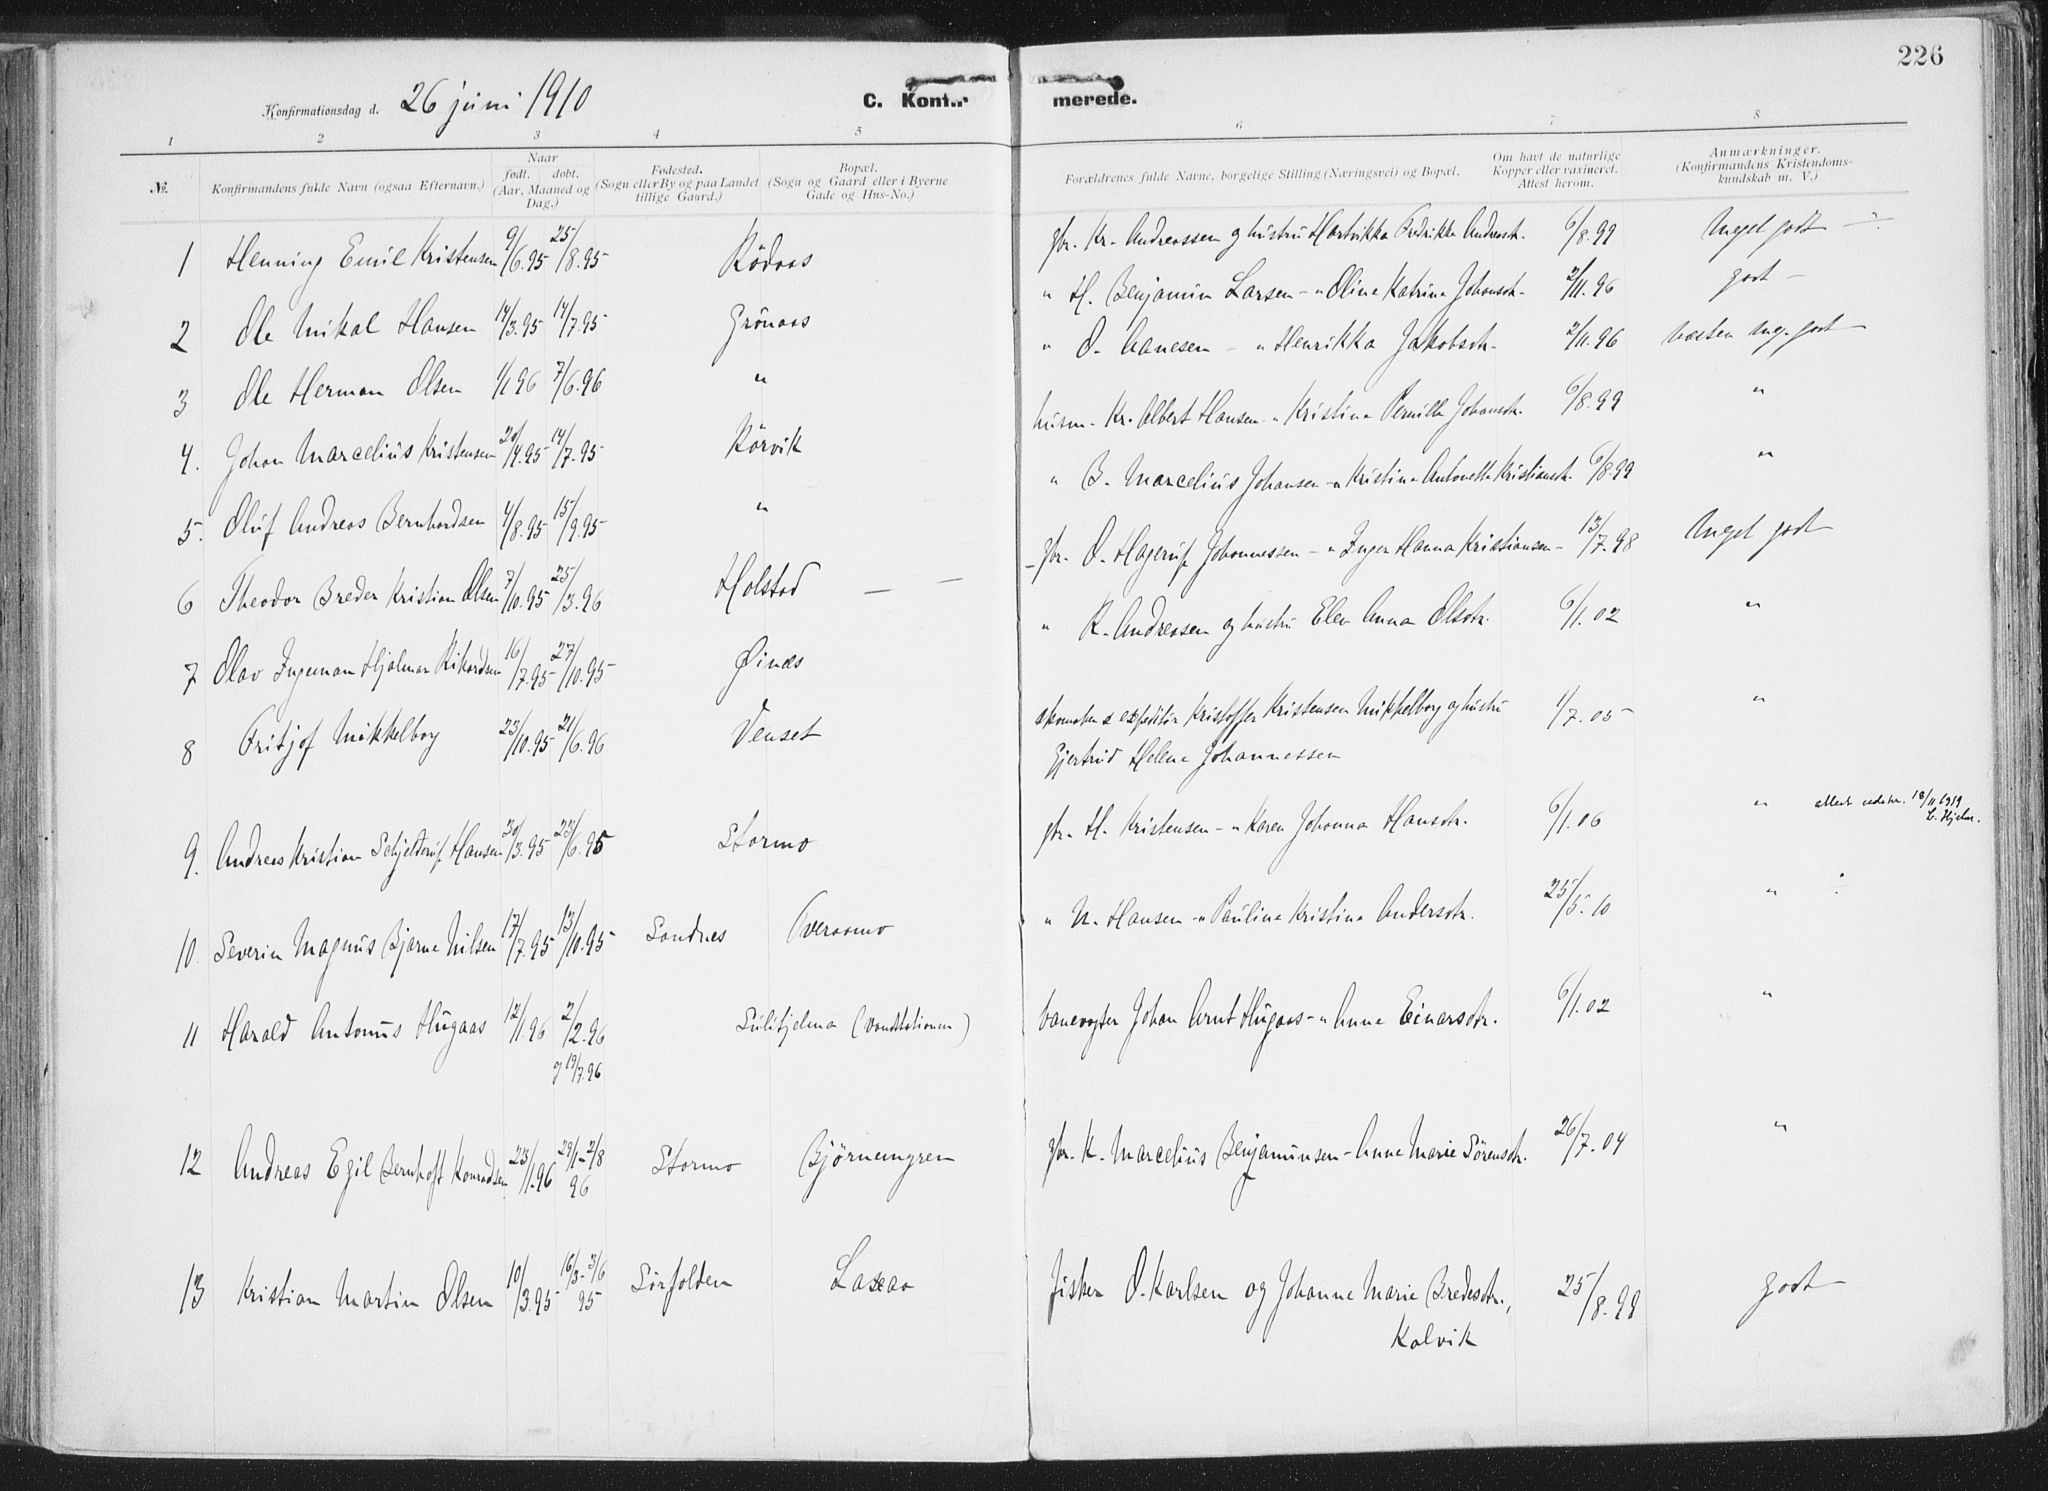 226
Konfirmationsdag d. 26 juni 1910 C. Konf merede.
1 2 3 4 5 6 7 8
№. Konfirmandens fulde Navn (ogsaa Efternavn.) Naar født. døbt. (Aar, Maaned og Dag.) Fødested. (Sogn eller By og paa Landet tillige Gaard.) Bopæl. (Sogn og Gaard eller i Byerne Gade og Hus-No.) Forældrenes fulde Navne, borgelige Stilling (Næringsvei) og Bopæl. Om havt de naturlige Kopper eller vaxineret. Attest herom. Anmærkninger. (Konfirmandens Kristendomskundskab m. V.)
1 Henning Emil Kristensen 9/6.95 25/8.95 Rödaas gbr. Kr. Andreassen og hustru Hartvikka Fredrikka Andreasdr. 6/8.99 Meget godt -
2 Ole Mikal Hansen 14/3.95 14/7.95 Grönaas " H. Benjamin Larsen - " Oline Katrine Johansdr. 2/11.96 godt -
3 Ole Herman Olsen 1/1 96 7/6.96 " " O. Hansen - " Henrikka Jakobsdr. 2/11.96 næsten meg. godt
4. Johan Marcelius Kristensen 20/4.95 14/7.95 Rörvik husm. Kr. Albert Hansen " Kristina Pernille Johansdr. 6/8.99 "
5. Oluf Andreas Bernhardsen 4/8.95 15/9.95 " " B. Marcelius Johansen - " Kristine Antonette Kristiansdr. 6/8.99 "
6 Theodor Breder Kristian Olsen 7/10.95 25/3.96 Holstad — — gbr. O. Hagerup Johannessen - " Inger Hanna Kristiansen - 13/7.98 Meget godt
7 Olav Ingeman Hjalmar Rikardsen 16/7.95 27/10.95 Øines " R. Andreassen og hustru Elen Anna Olsdr. 6/1.02 "
8 Fritjof Mikkelborg 23/10.95 21/6.96 Venset skomaker & expeditör Kristoffer Kristensen Mikkelborg og hustru 1/7.05 "
Gjertrud Helene Johannessen
9. Andreas Kristian Schjelderup Hansen 30/3.95 23/6.95 Stormo gbr. H. Kristensen - " Karen Johanna Hansdr. 6/1.06 " attest udstr. 18/11 1919
10. Severin Magnus Bjarne Nilsen 17/7.95 13/10.95 Sandnes Tveraamo " N. Hansen - " Pauline Kristine Andersdr. 25/5.10 "
11 Harald Antonius Hugaas 12/1.96 2/2.96 Sulitjelma (vandstationen) banevogter Johan Arnt Hugaas - " Anne Einarsdtr. 6/1.02 "
19/7.96
12 Andreas Egil Bernhoft Konradsen 23/1.96 29/1-2/8 96 Stormo Björnemyren gbr. K. Marcelius Benjaminsen - Anne Marie Sörensdr. 26/7.04 "
13 Kristian Martin Olsen 10/3.95 16/3-3/6 95 Sörfolden Laxaa fisker O. Karlsen og Johanne Marie Bredesdtr., 25/8.99 godt
Kalvik